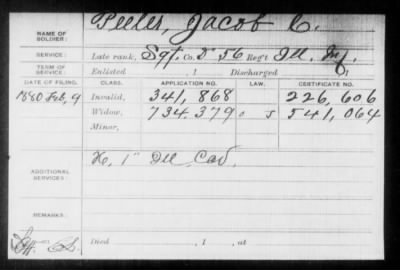 NAME OF SOLDIER: Peeler, Jacob C.
SERVICE: Late rank, Sgt. Co. D 56 Reg't Ill. Inf.
TERM OF SERVICE: Enlisted , 1 Discharged , 1
DATE OF FILING. CLASS. APPLICATION NO. LAW. CERTIFICATE NO.
1880 Feb, 9 Invalid, 341,868 226,606
Widow, 734,379 541,064
Minor,
ADDITIONAL SERVICES: H, 1" Ill Cav.
REMARKS:
Died , 1 , at